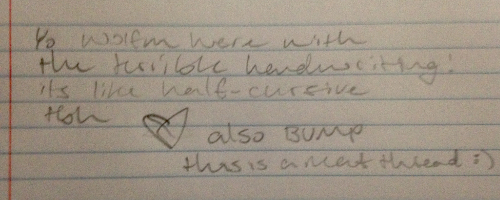 Yo Wolfm here with
the terrible handwritting!
its like half-cursive
tbh
also BUMP
this is a neat thread :)